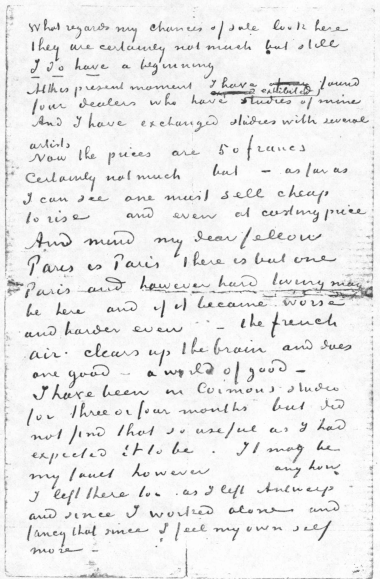 What regards my chances of sale look here
they are certainly not much but still
I do have a beginning
At this present moment I have found
four dealers who have exhibited studies of mine
And I have exchanged studies with several
artists
Now the prices are 50 francs
Certainly not much but — as far as
I can see one must sell cheap
to rise and even at costing price
And mind my dear fellow
Paris is Paris there is but one
Paris and however hard living may
be here and if it became worse
and harder even — the french
air clears up the brain and does
one good — a world of good —
I have been in Cormons studio
for three or four months but did
not find that so useful as I had
expected it to be . It may be
my fault however any how
I left there too as I left Antwerp
and since I worked alone and
fancy that since I feel my own self
more —